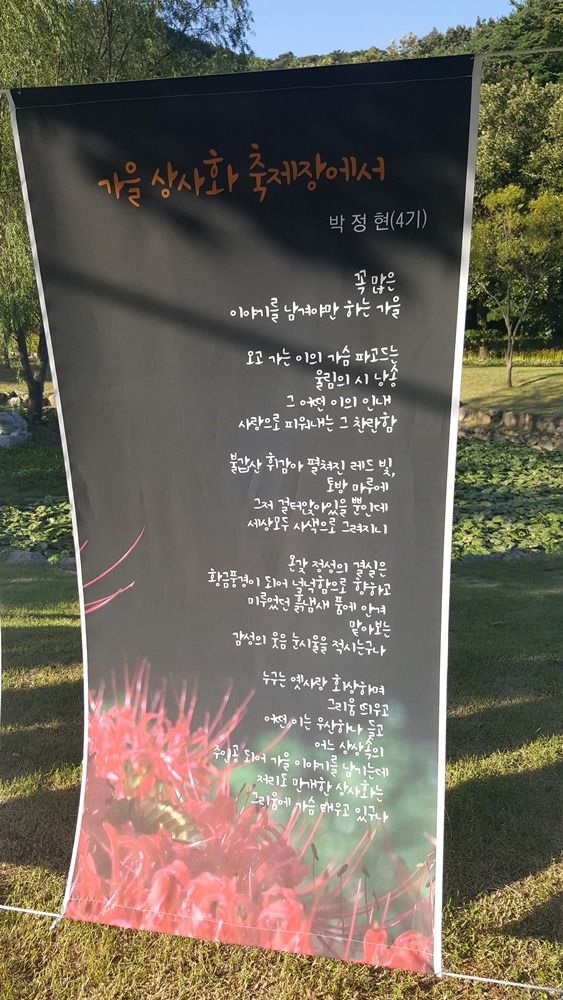 가을 상사화 축제장에서
박 정 현(4기)
꼭 많은
이야기를 남겨야만 하는 가을
오고 가는 이의 가슴 파고드는
울림의 시 낭송
그 어떤 이의 인내
사랑으로 피워내는 그 찬란함
불갑산 휘감아 펼쳐진 레드 빛,
토방 마루에
그저 걸터앉아있을 뿐인데
세상모두 사색으로 그려지니
온갖 정성의 결실은
황금풍경이 되어 넉넉함으로 향하고
미루었던 흙냄새 품에 안겨
맡아보는
감성의 웃음 눈시울을 적시는구나
누구는 옛사랑 회상하며
그리움 띄우고
어떤 이는 우산하나 들고
어느 상상속의
주인공 되어 가을 이야기를 남기는데
저리도 만개한 상사화는
그리움에 가슴 태우고 있구나